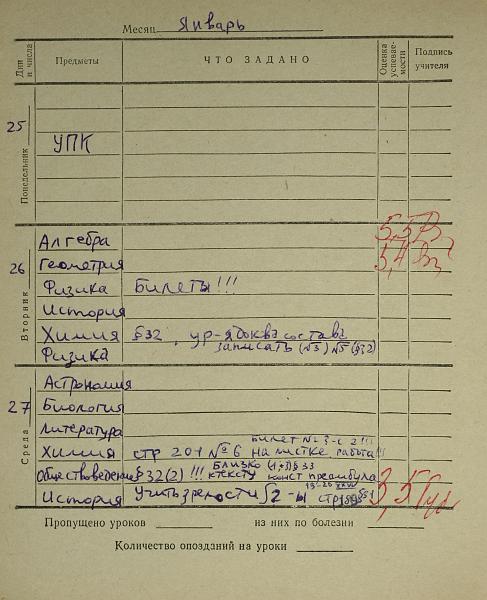 Месяц Январь
Дни и числа Предметы ЧТО ЗАДАНО Оценка успеваемости Подпись учителя
Понедельник 25
УПК
Вторник 26
Алгебра 5,5
Геометрия 5,4
Физика Билеты!!!
История
Химия §32, ур-я
записать (№3) №5 (§32)
Физика
Среда 27
Астрономия
Биология
Литература
Билет №3-с 2!!!
Химия стр 201 №6 на листке работа!!
Близко (1+3) § 33
Обществоведение § 32(2) !!! к тексту конст преамбула
19-26 XXVI
История Учить зрелости 2-ы стр
Пропущено уроков из них по болезни
Количество опозданий на уроки